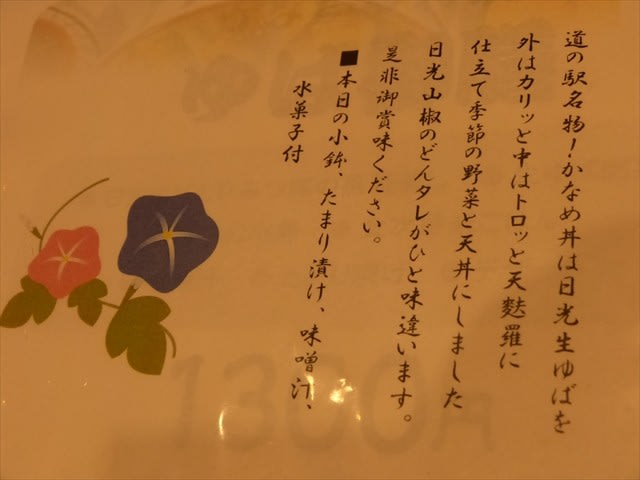 道の駅名物!かなめ丼は日光生ゆばを
外はカリッと中はトロッと天麩羅に
仕立て季節の野菜と天丼にしました
日光山椒のどんタレがひと味違います。
是非御賞味ください。
■本日の小鉢、たまり漬け、味噌汁、
水菓子付
1300円